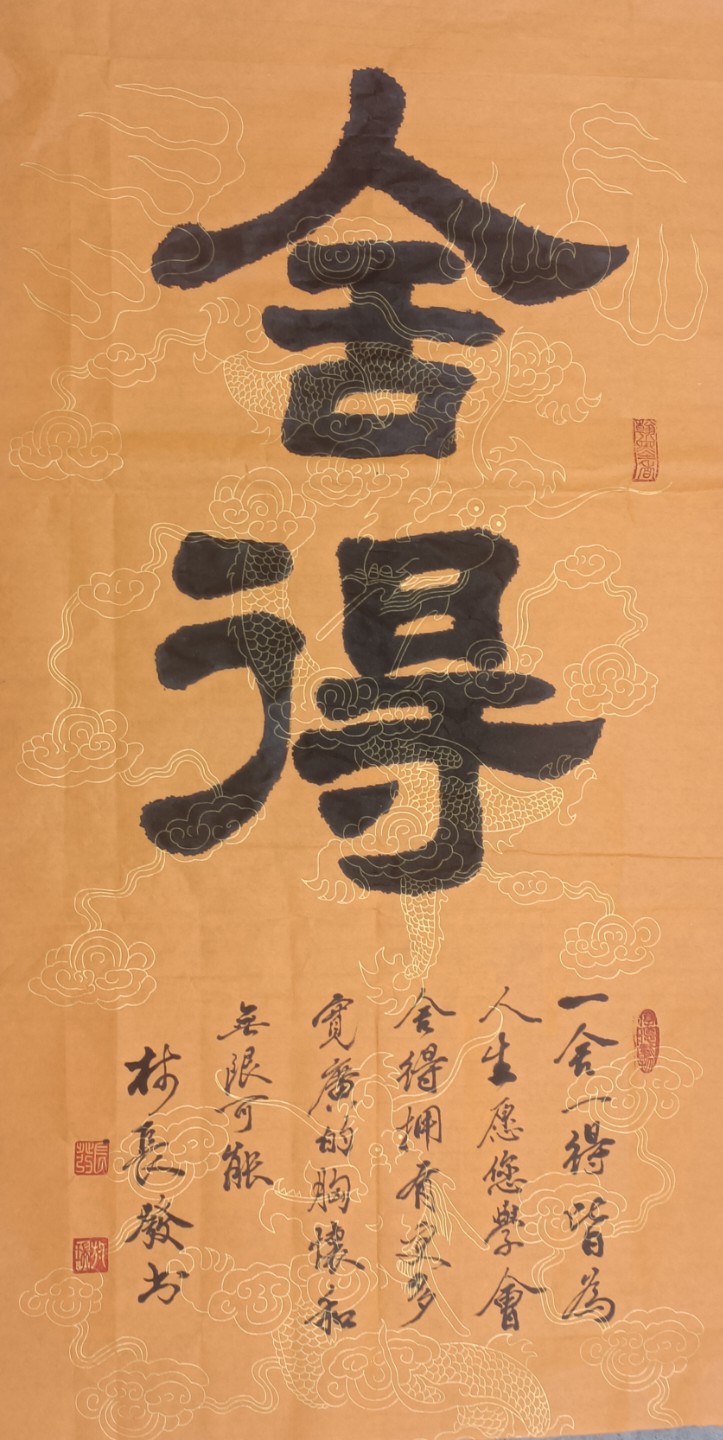 舍得
一舍一得皆為
人生愿您學會
舍得拥有更多
寬廣的胸懷和
無限可能
林長發书